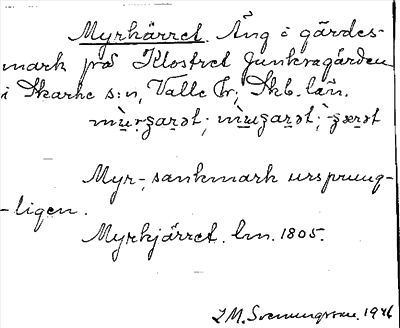 Myrkärret. Äng i gärdes-
mark på Klostret Junkragården
i Skarke s:n, Valle hr, Skb. län.
Myr-, sankmark ursprung-
-ligen.
Myrkjärret. lm. 1805.
I M. Svenungsson. 1946